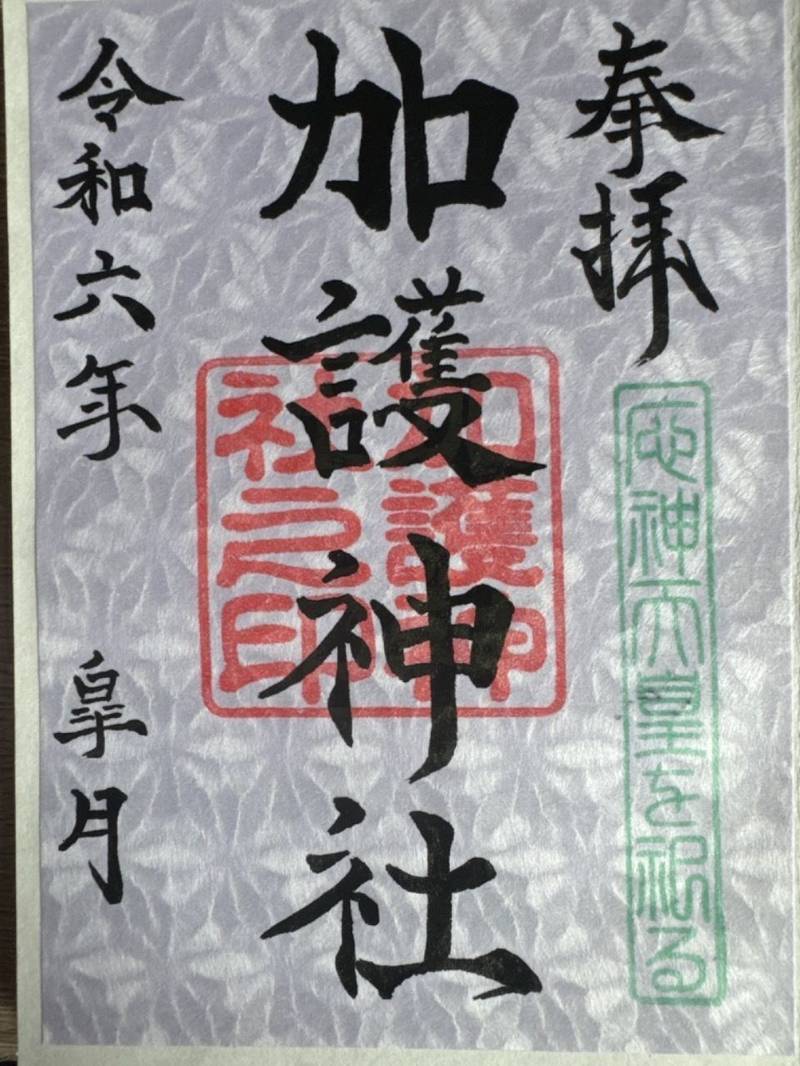 奉拝
應神天皇を祀る
加護神社
加護神
社之印
令和六年 皐月